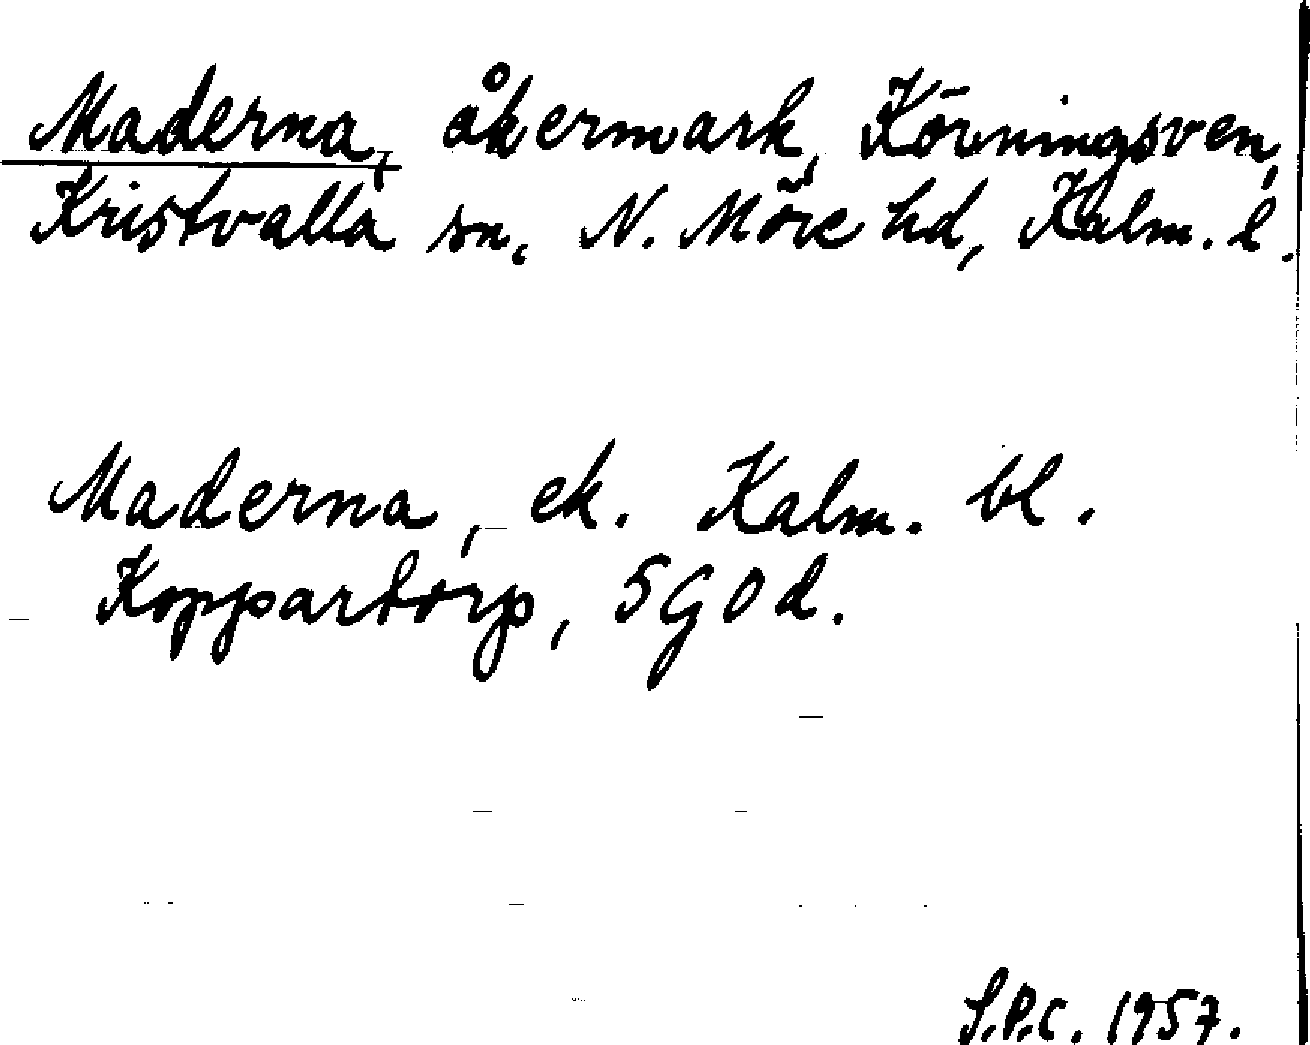 Maderna, åkermark, Körningsven,
Kristvalla sn, N. Möre hd, Kalm. l.
Maderna, ek. Kalm. bl.
Koppartorp, SGOd.
S.P.C. 1957.